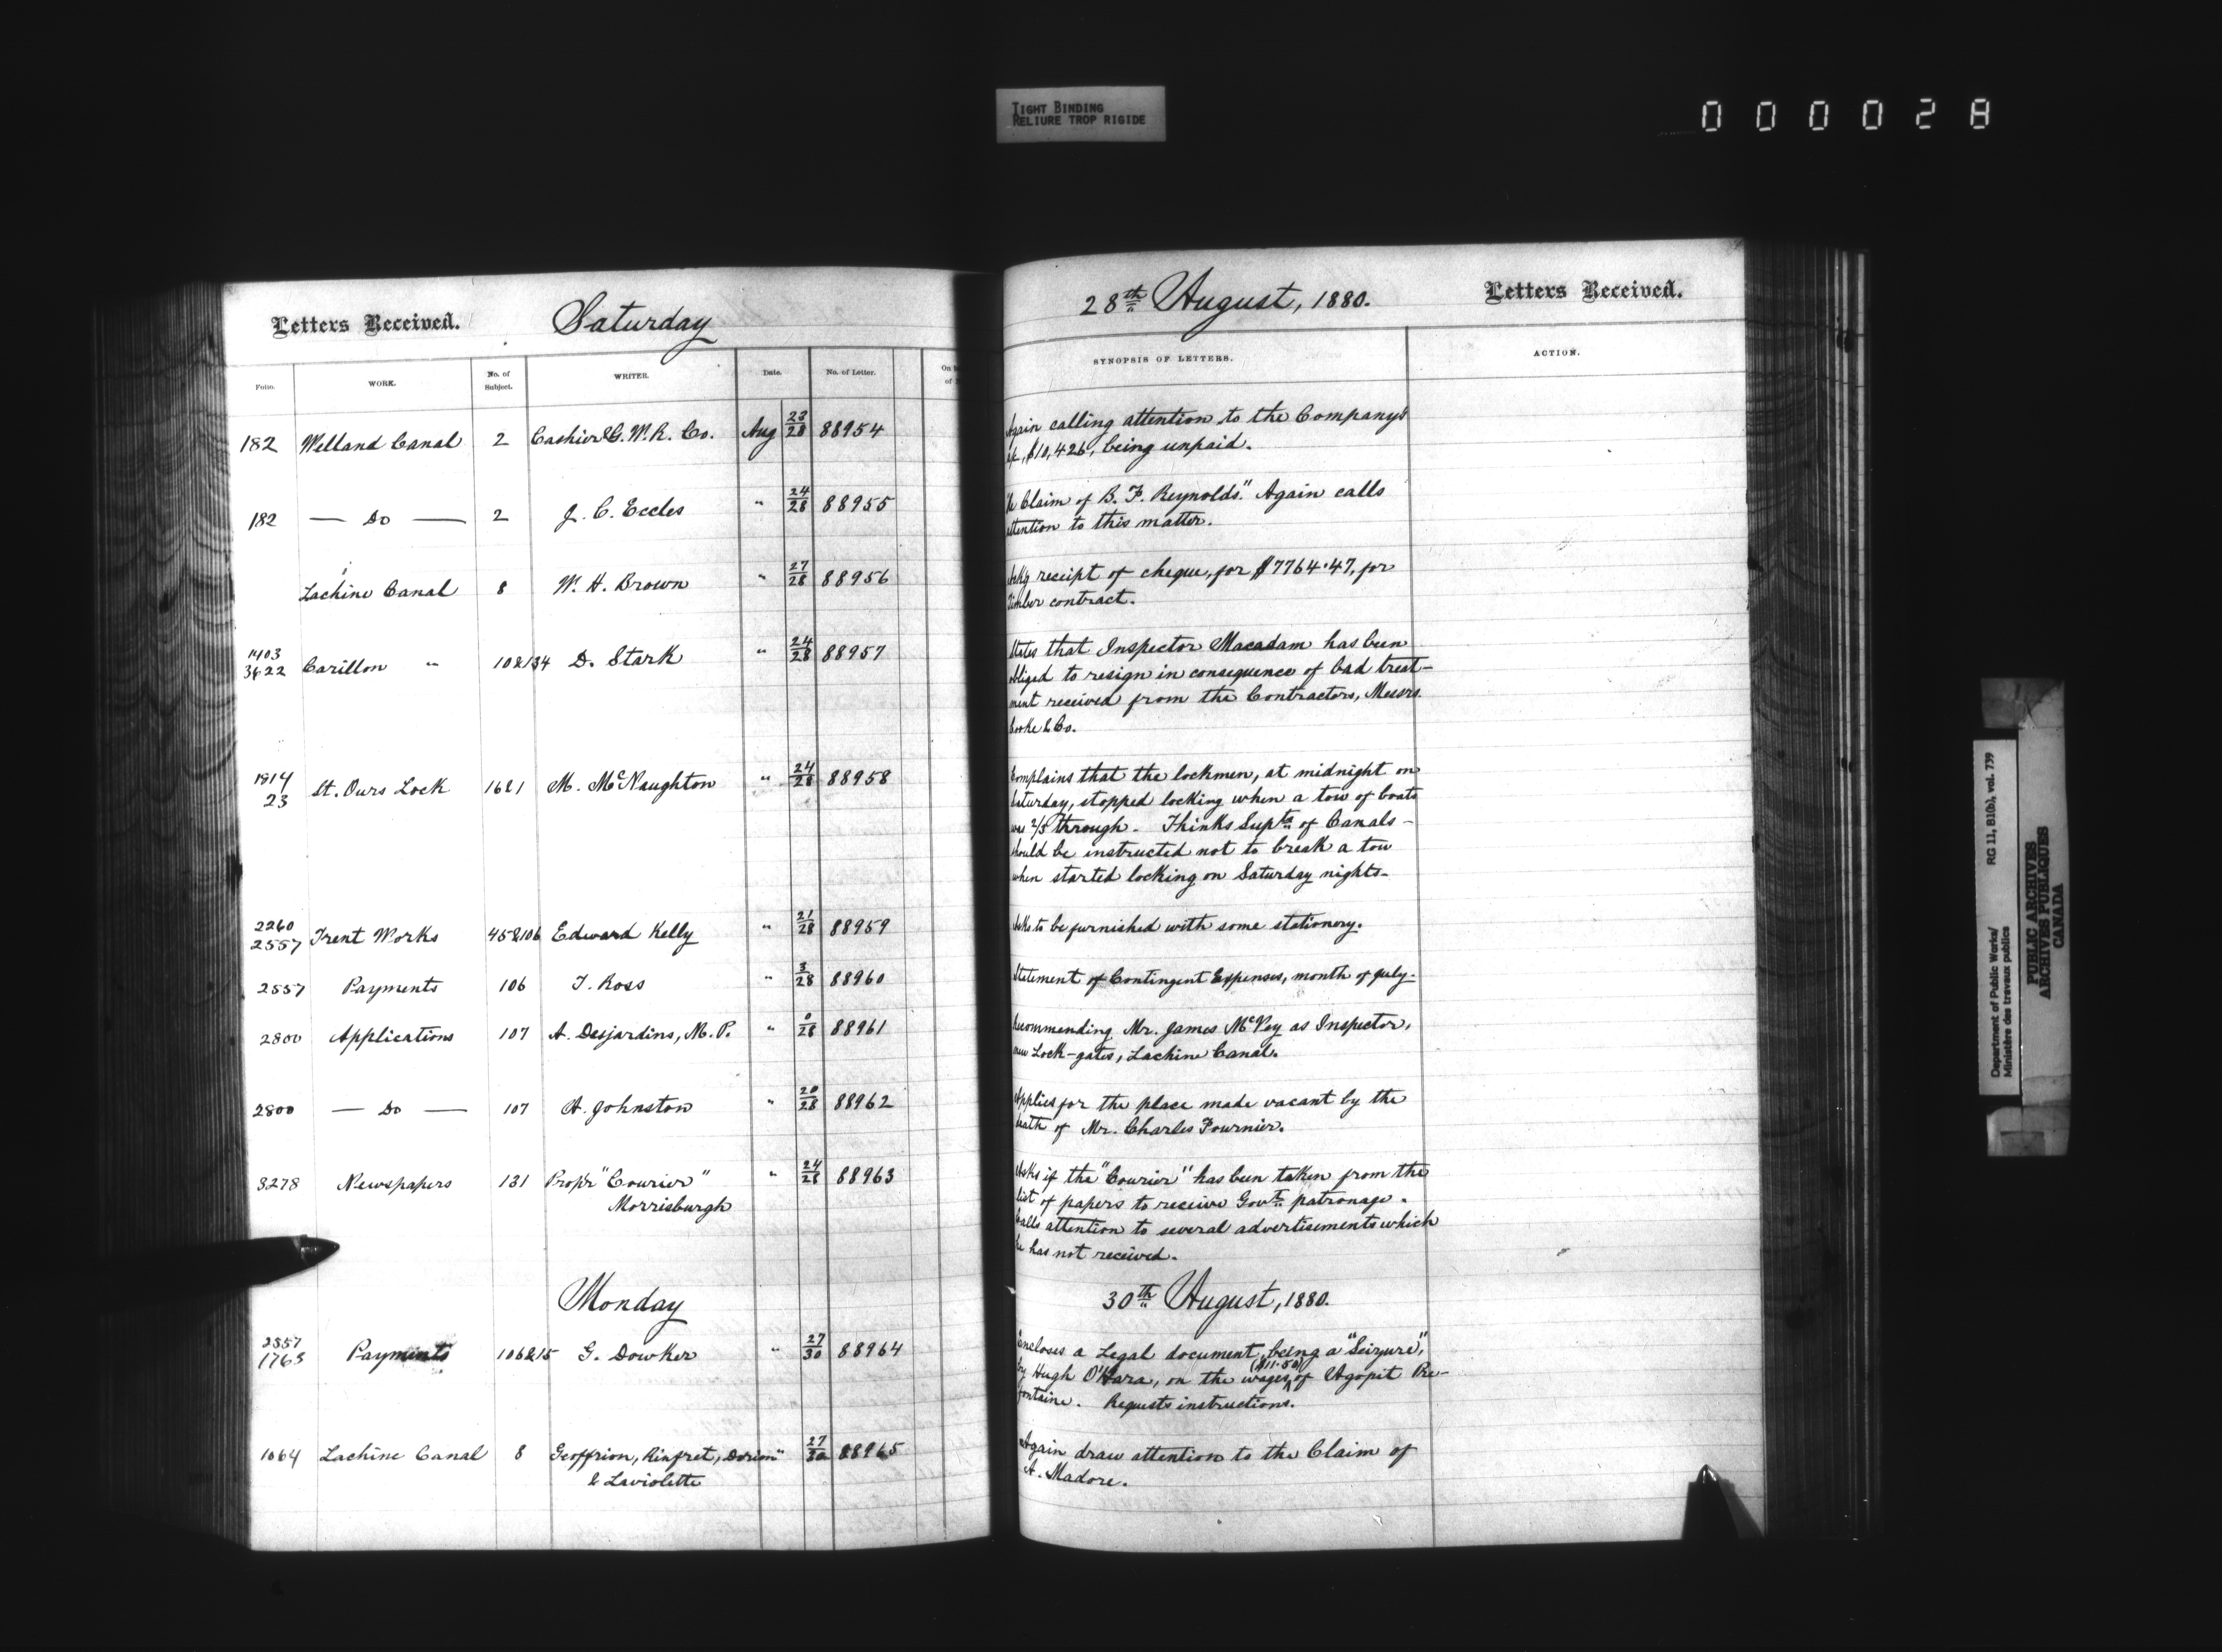 TIGHT BINDING
RELIURE TROP RIGIDE
000028
Letters Received. Saturday
Folio. WORK. No. of Subject. WRITER. Date. No. of Letter.
182 Welland Canal 2 Cashier G. W. R. Co. Aug 23/28 88954
182 — Do — 2 J. C. Eccles " 24/28 88955
Lachine Canal 8 W. H. Brown " 27/28 88956
1403
3622 Carillon " 10&134 D. Stark " 24/28 88957
1814
23 St. Ours Lock 16&1 M. McNaughton " 24/28 88958
2260
2557 Trent Works 45&106 Edward Kelly " 21/28 88959
2557 Payments 106 T. Ross " 3/28 88960
2800 Applications 107 A. Desjardins, M. P. " 0/28 88961
2800 — Do — 107 A. Johnston " 20/28 88962
3278 Newspapers 131 Propr "Courier" " 24/28 88963
Morrisburgh
Monday
2557
1763 Payments 106&15 G. Dowker " 27/30 88964
1064 Lachine Canal 8 Geoffrion, Rinfret, Dorion " 27/30 88965
& Laviolette
28th August, 1880. Letters Received.
SYNOPSIS OF LETTERS. ACTION.
Again calling attention to the Company's
a/c, $10,426, being unpaid.
Claim of B. F. Reynolds." Again calls
attention to this matter.
receipt of cheque, for $7764.47, for
Timber contract.
States that Inspector Macadam has been
obliged to resign in consequence of bad treat-
ment received from the Contractors, Messrs.
Cooke & Co.
Complains that the lockmen, at midnight on
Saturday, stopped locking when a tow of boats
was 2/3 through. Thinks Supts of Canals -
should be instructed not to break a tow
when started locking on Saturday nights-
Asks to be furnished with some stationery.
Statement of Contingent Expenses, month of July.
Recommending Mr. James McVey as Inspector,
new Lock-gates, Lachine Canal.
Applies for the place made vacant by the
death of Mr. Charles Fournier.
Asks if the "Courier" has been taken from the
list of papers to receive Govt patronage.
Calls attention to several advertisements which
he has not received.
30th August, 1880.
Encloses a Legal document, being a "Seizure",
by Hugh O'Hara, on the wages ($11.50) of Agopit Pre-
fontaine. Requests instructions.
Again draw attention to the Claim of
A. Madore.
Department of Public Works/
Ministère des travaux publics
RG 11, B1(b), vol. 739
PUBLIC ARCHIVES
ARCHIVES PUBLIQUES
CANADA